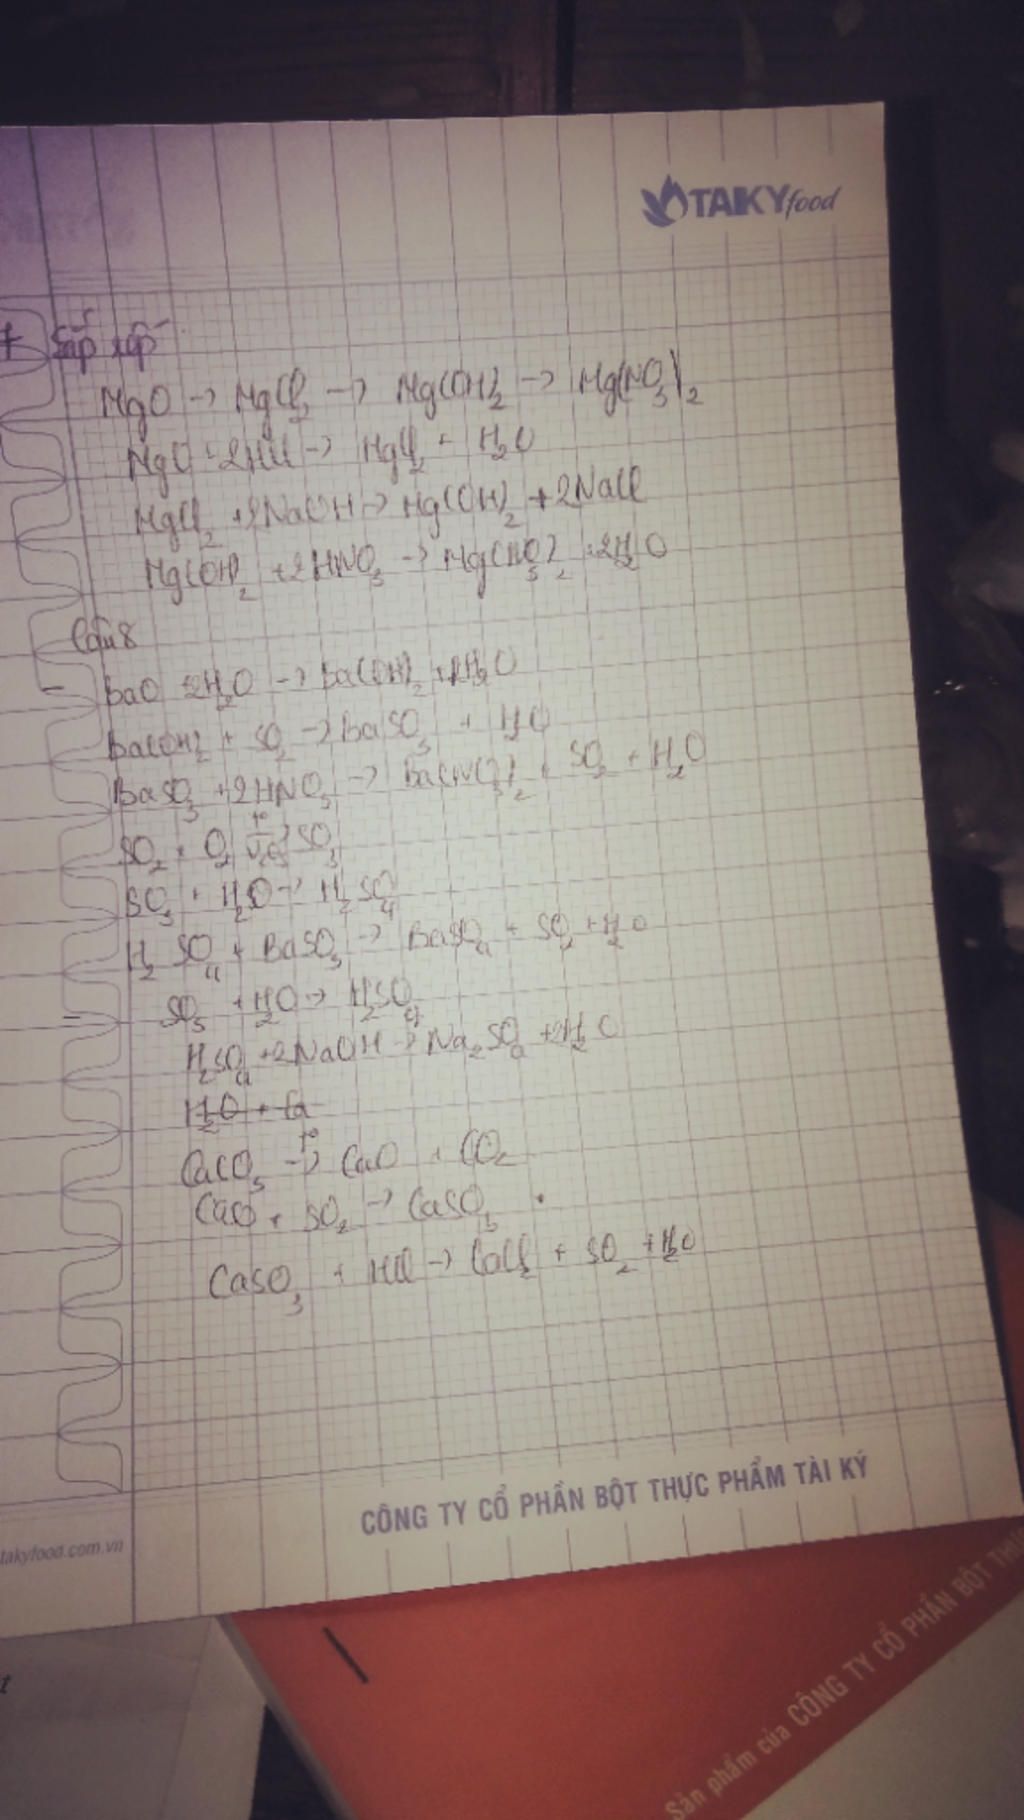 TAKYfood
Sắp xếp
MgO → MgCl2 → Mg(OH)2 → Mg(NO3)2
MgO + 2HCl → MgCl2 + H2O
MgCl2 + 2NaOH → Mg(OH)2 + 2NaCl
Mg(OH)2 + 2HNO3 → Mg(NO3)2 + 2H2O
Câu 8
BaO 2H2O → Ba(OH)2 + H2O
Ba(OH)2 + SO2 → BaSO3 + H2O
BaSO3 + 2HNO3 → Ba(NO3)2 + SO2 + H2O
SO2 + O2 t° V2O5 → SO3
SO3 + H2O → H2SO4
H2SO4 + BaSO3 → BaSO4 + SO2 + H2O
SO3 + H2O → H2SO4
H2SO4 + 2NaOH → Na2SO4 + 2H2O
H2O + Ca
CaCO3 t° → CaO + CO2
CaO + SO2 → CaSO3
CaSO3 + HCl → CaCl2 + SO2 + H2O
CÔNG TY CỔ PHẦN BỘT THỰC PHẨM TÀI KÝ
takyfood.com.vn
Sản phẩm của CÔNG TY CỔ PHẦN BỘT